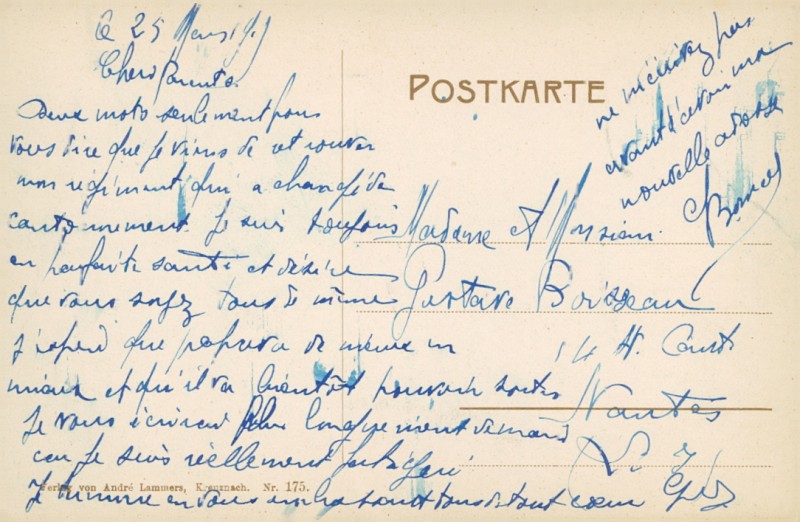 le 25 Mars 19
Chers Parents
Deux mots seulement pour
vous dire que je viens de retrouver
mon régiment qui a changé de
cantonnement. Je suis toujours
en parfaite santé et désire
que vous soyez tous de même
J'espère que papa va de mieux en
mieux et qu'il va bientôt pouvoir sortir
Je vous écrirai plus longuement demain
car je suis réellement fatigué
Je termine en vous embrassant tous de tout cœur
POSTKARTE
ne m'écrivez pas
avant d'avoir ma
nouvelle adresse
Madame et Monsieur
Gustave Boisseau
14 H.
Nantes
Verlag von André Lammers, Kreuznach. Nr. 175.